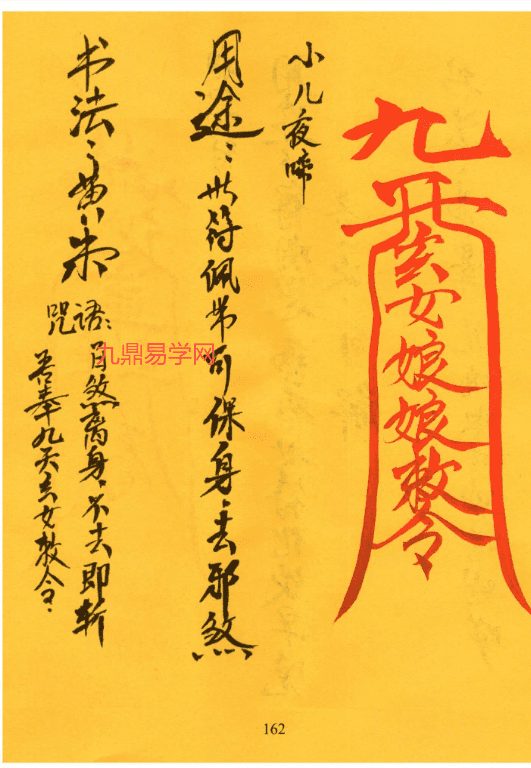 九天玄女娘娘敕令
小儿夜啼
用途:此符佩带可保身、去邪煞
书法:黄、朱
咒语:百煞离身,不去即斩
吾奉九天玄女敕令.
九鼎易学网
162